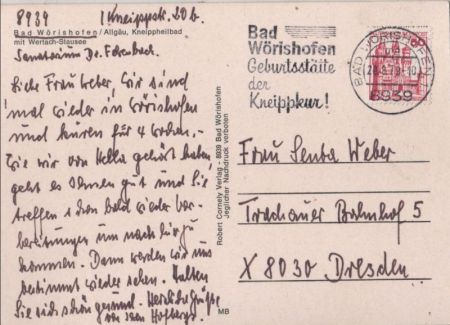 8939 Kneippstr. 20 b.
Bad Wörishofen/Allgäu, Kneippheilbad
mit Wertach-Stausee
Sanatorium Dr.
Liebe Frau Weber, Wir sind
mal wieder in Wörishofen
und kuren für 4 Wochen.
Wie wir von Hella gehört haben,
geht es Ihnen gut und Sie
treffen schon bald wieder Vor-
bereitungen um nach hier zu
kommen. Dann werden wir uns
bestimmt wieder sehen. Halten
Sie sich schön gesund. Herzliche Grüße
von Ihren
Robert Cornely Verlag - 8939 Bad Wörishofen
Jeglicher Nachdruck verboten
MB
Bad
Wörishofen
Geburtsstätte
der
Kneippkur!
BAD WÖRISHOFEN
8939
60
Frau Senta Weber
Trachauer Bahnhof 5
X 8030 Dresden